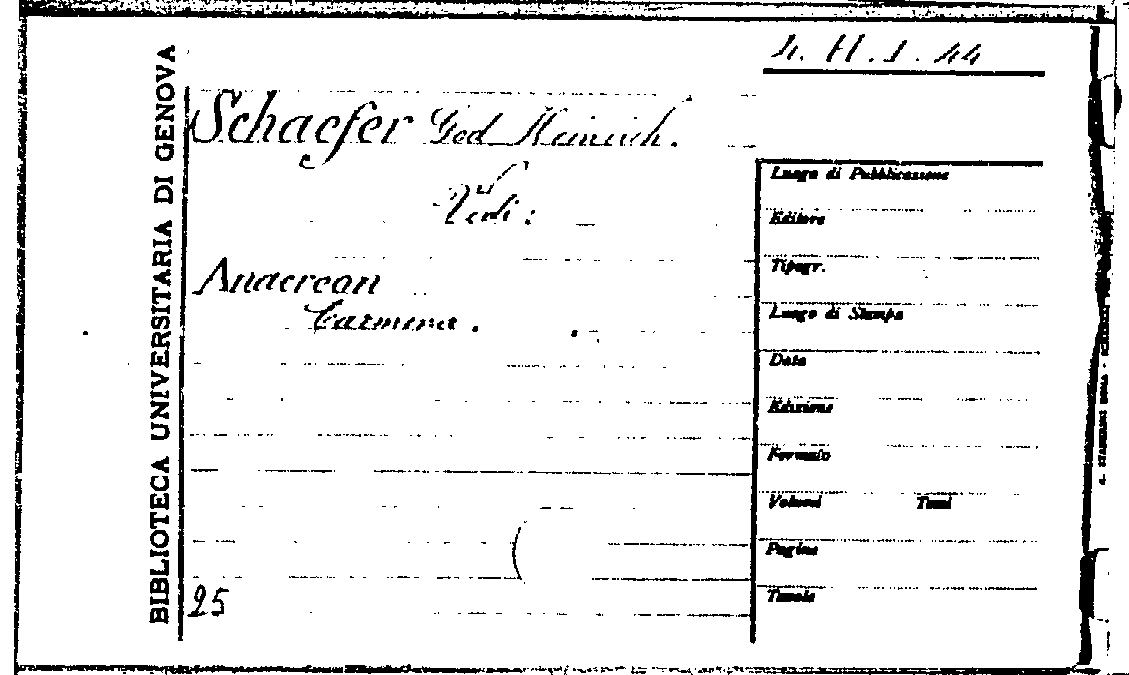 4. H. 1. 44
BIBLIOTECA UNIVERSITARIA DI GENOVA
Schaefer God Heinrich.
Vedi:
Anacreon
Carmina.
25
Luogo di Pubblicazione
Editore
Tipogr.
Luogo di Stampa
Data
Edizione
Formato
Volumi Tomi
Pagine
Tavole